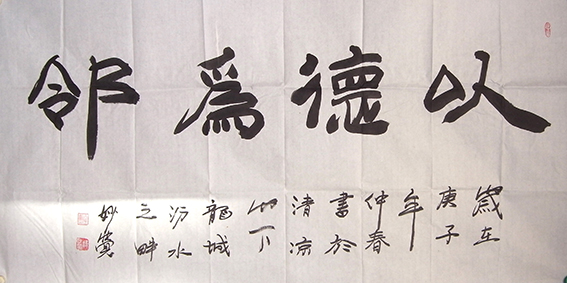 以德爲邻
歲在
庚子
年
仲春
書於
清凉
山下
龍城
汾水
之畔
妙